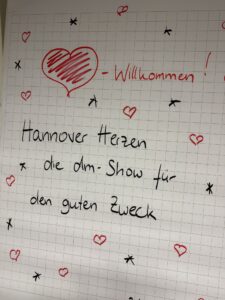 -Willkommen!
Hannover Herzen
die dm-Show für
den guten Zweck